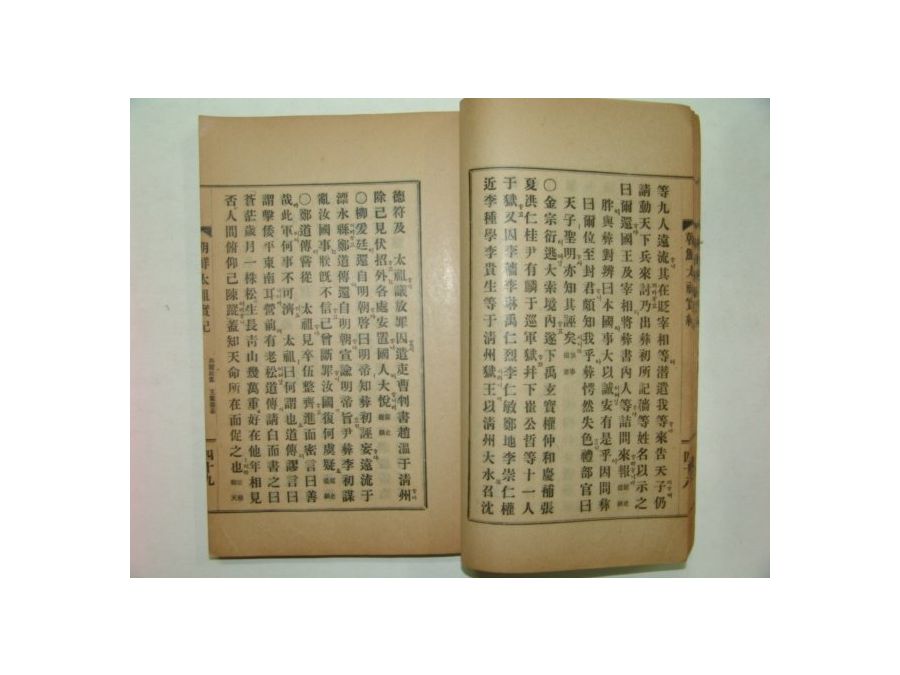 等九人遠流其在貶宰相等潜遣我等來告天子仍
請動天下兵來討乃出彝初所記濇等姓名以示之
曰爾還國王及宰相將彝書內人等詰問來報
胖與彝對辨曰本國事大以誠安有是乎因問彝
曰爾位至封君頗知我乎彝愕然失色禮部官曰
天子聖明亦知其誣矣
〇金宗衍逃大索境內遂下禹玄寶權仲和慶補張
夏洪仁桂尹有麟于巡軍獄幷下崔公哲等十一人
于獄又囚李穡李琳禹仁烈李仁敏鄭地李崇仁權
近李種學李貴生等于淸州獄王以淸州大水召沈
德符及 太祖議放罪囚遣吏曹判書趙溫于淸州
除己見伏招外各處安置國人大悅
〇柳爰廷還自明朝啓曰明帝知彝初誣妄遠流于
漂水縣鄭道傳還自明朝宣諭明帝旨尹彝李初謀
亂汝國事朕旣不信己曾斷罪汝國復何虞疑
〇鄭道傳嘗從 太祖見卒伍整齊進而密言曰善
哉此軍何事不可濟 太祖曰何謂也道傳謬言曰
謂擊倭平東南耳營前有老松道傳請白面書之曰
蒼茫歲月一株松生長靑山幾萬重好在他年相見
否人間俯仰己陳蹤蓋知天命所在而促之也
朝鮮太祖實記
四十九